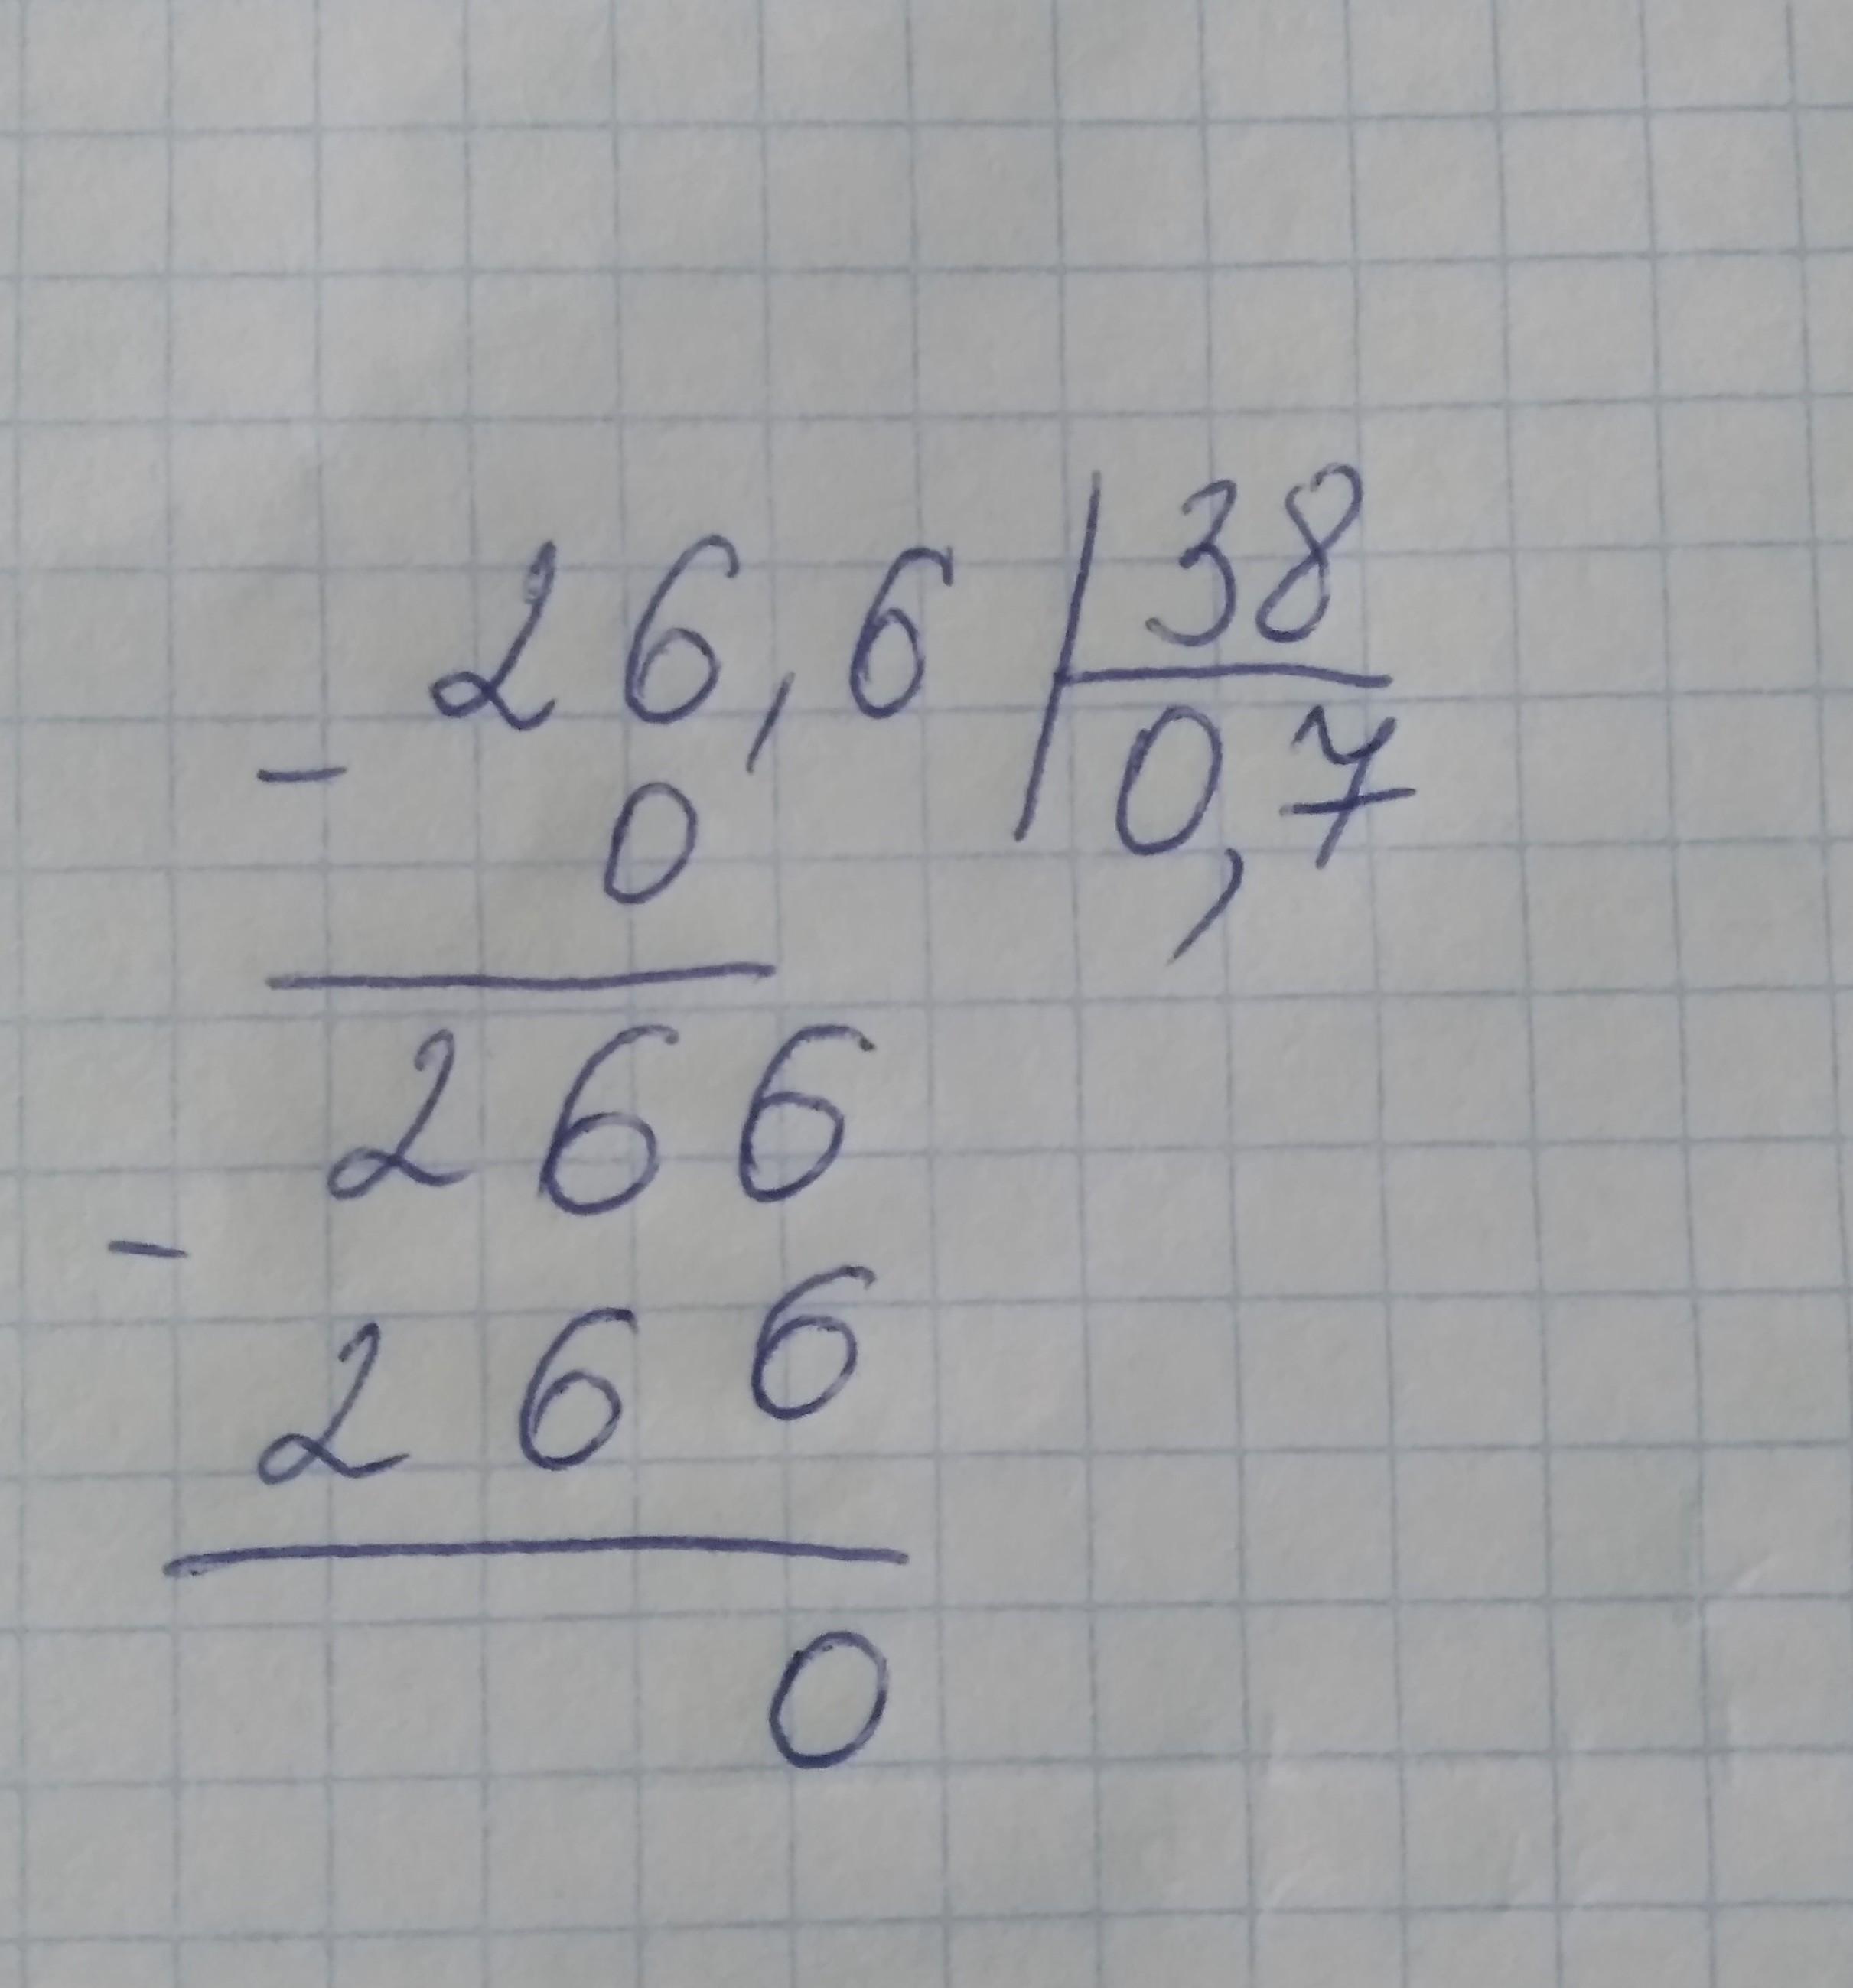 26,6 38
0,7
- 0
266
-
266
0